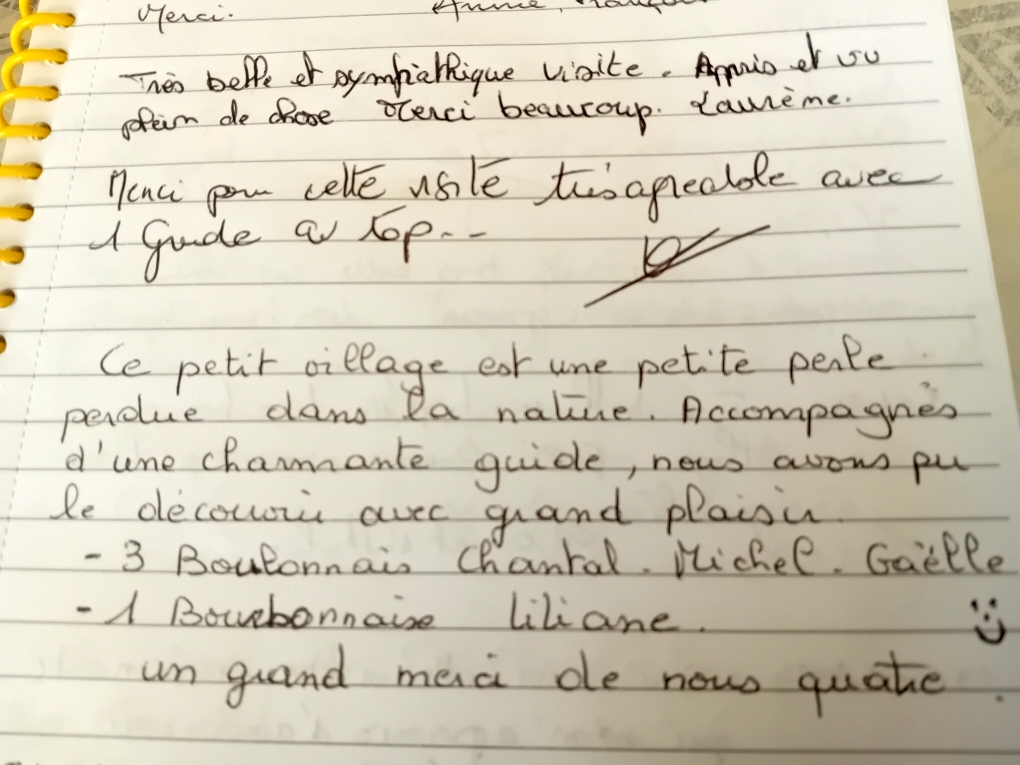 Merci. Annie,
Très belle et sympathique visite. Appris et vu
plein de chose Merci beaucoup.
Merci pour cette visite très agréable avec
1 Guide au Top..
Ce petit village est une petite perle
perdue dans la nature. Accompagnés
d'une charmante guide, nous avons pu
le découvrir avec grand plaisir.
- 3 Boulonnais Chantal. Michel. Gaëlle
- 1 Bourbonnaise Liliane.
un grand merci de nous quatre.